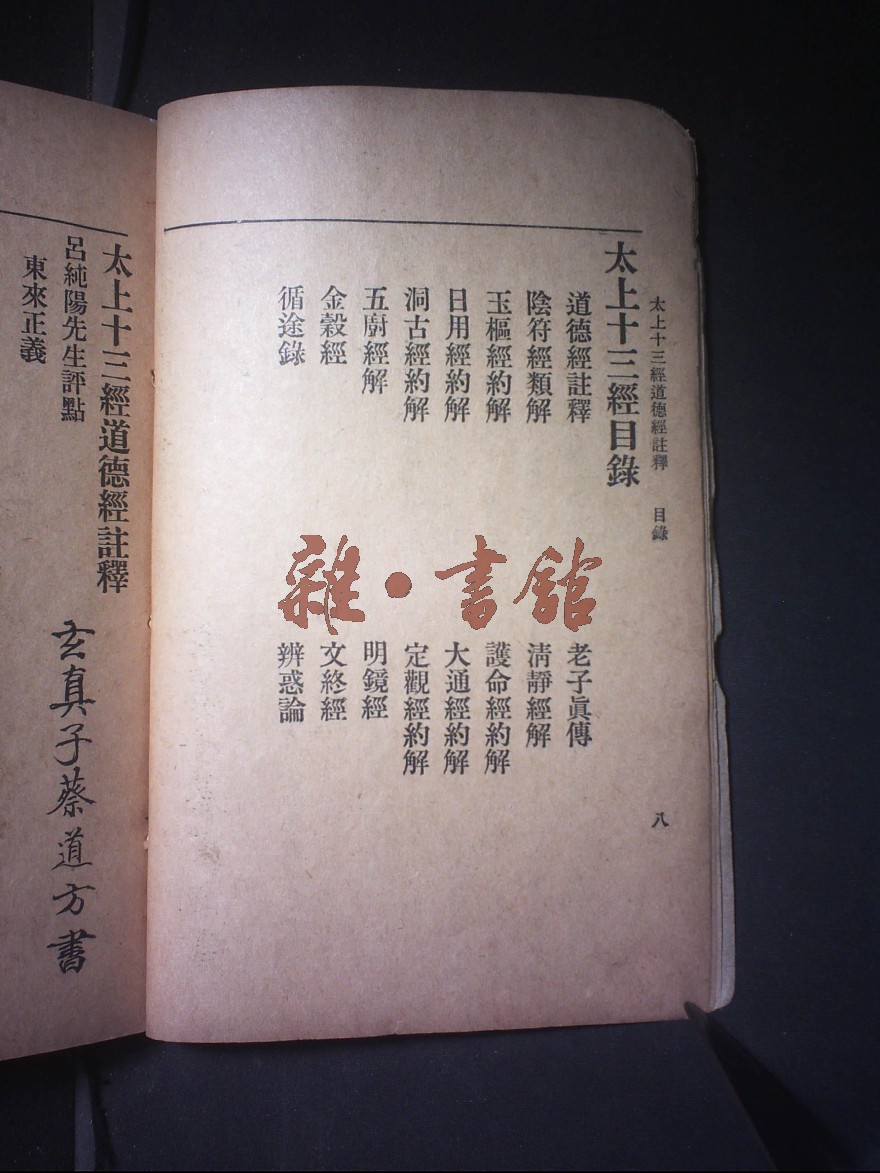 太上十三經道德經註釋 目錄 八
太上十三經目錄
道德經註釋 老子眞傳
陰符經類解 淸靜經解
玉樞經約解 護命經約解
日用經約解 大通經約解
洞古經約解 定觀經約解
五廚經解 明鏡經
金穀經 文終經
循途錄 辨惑論
雜·書館
太上十三經道德經註釋
呂純陽先生評點
東來正義
玄真子蔡道方書